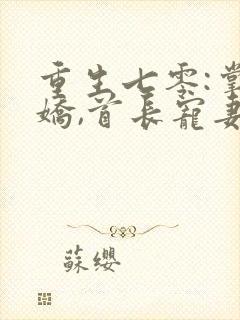 重生七零:掌
嬌,首長寵妻
蘇纓